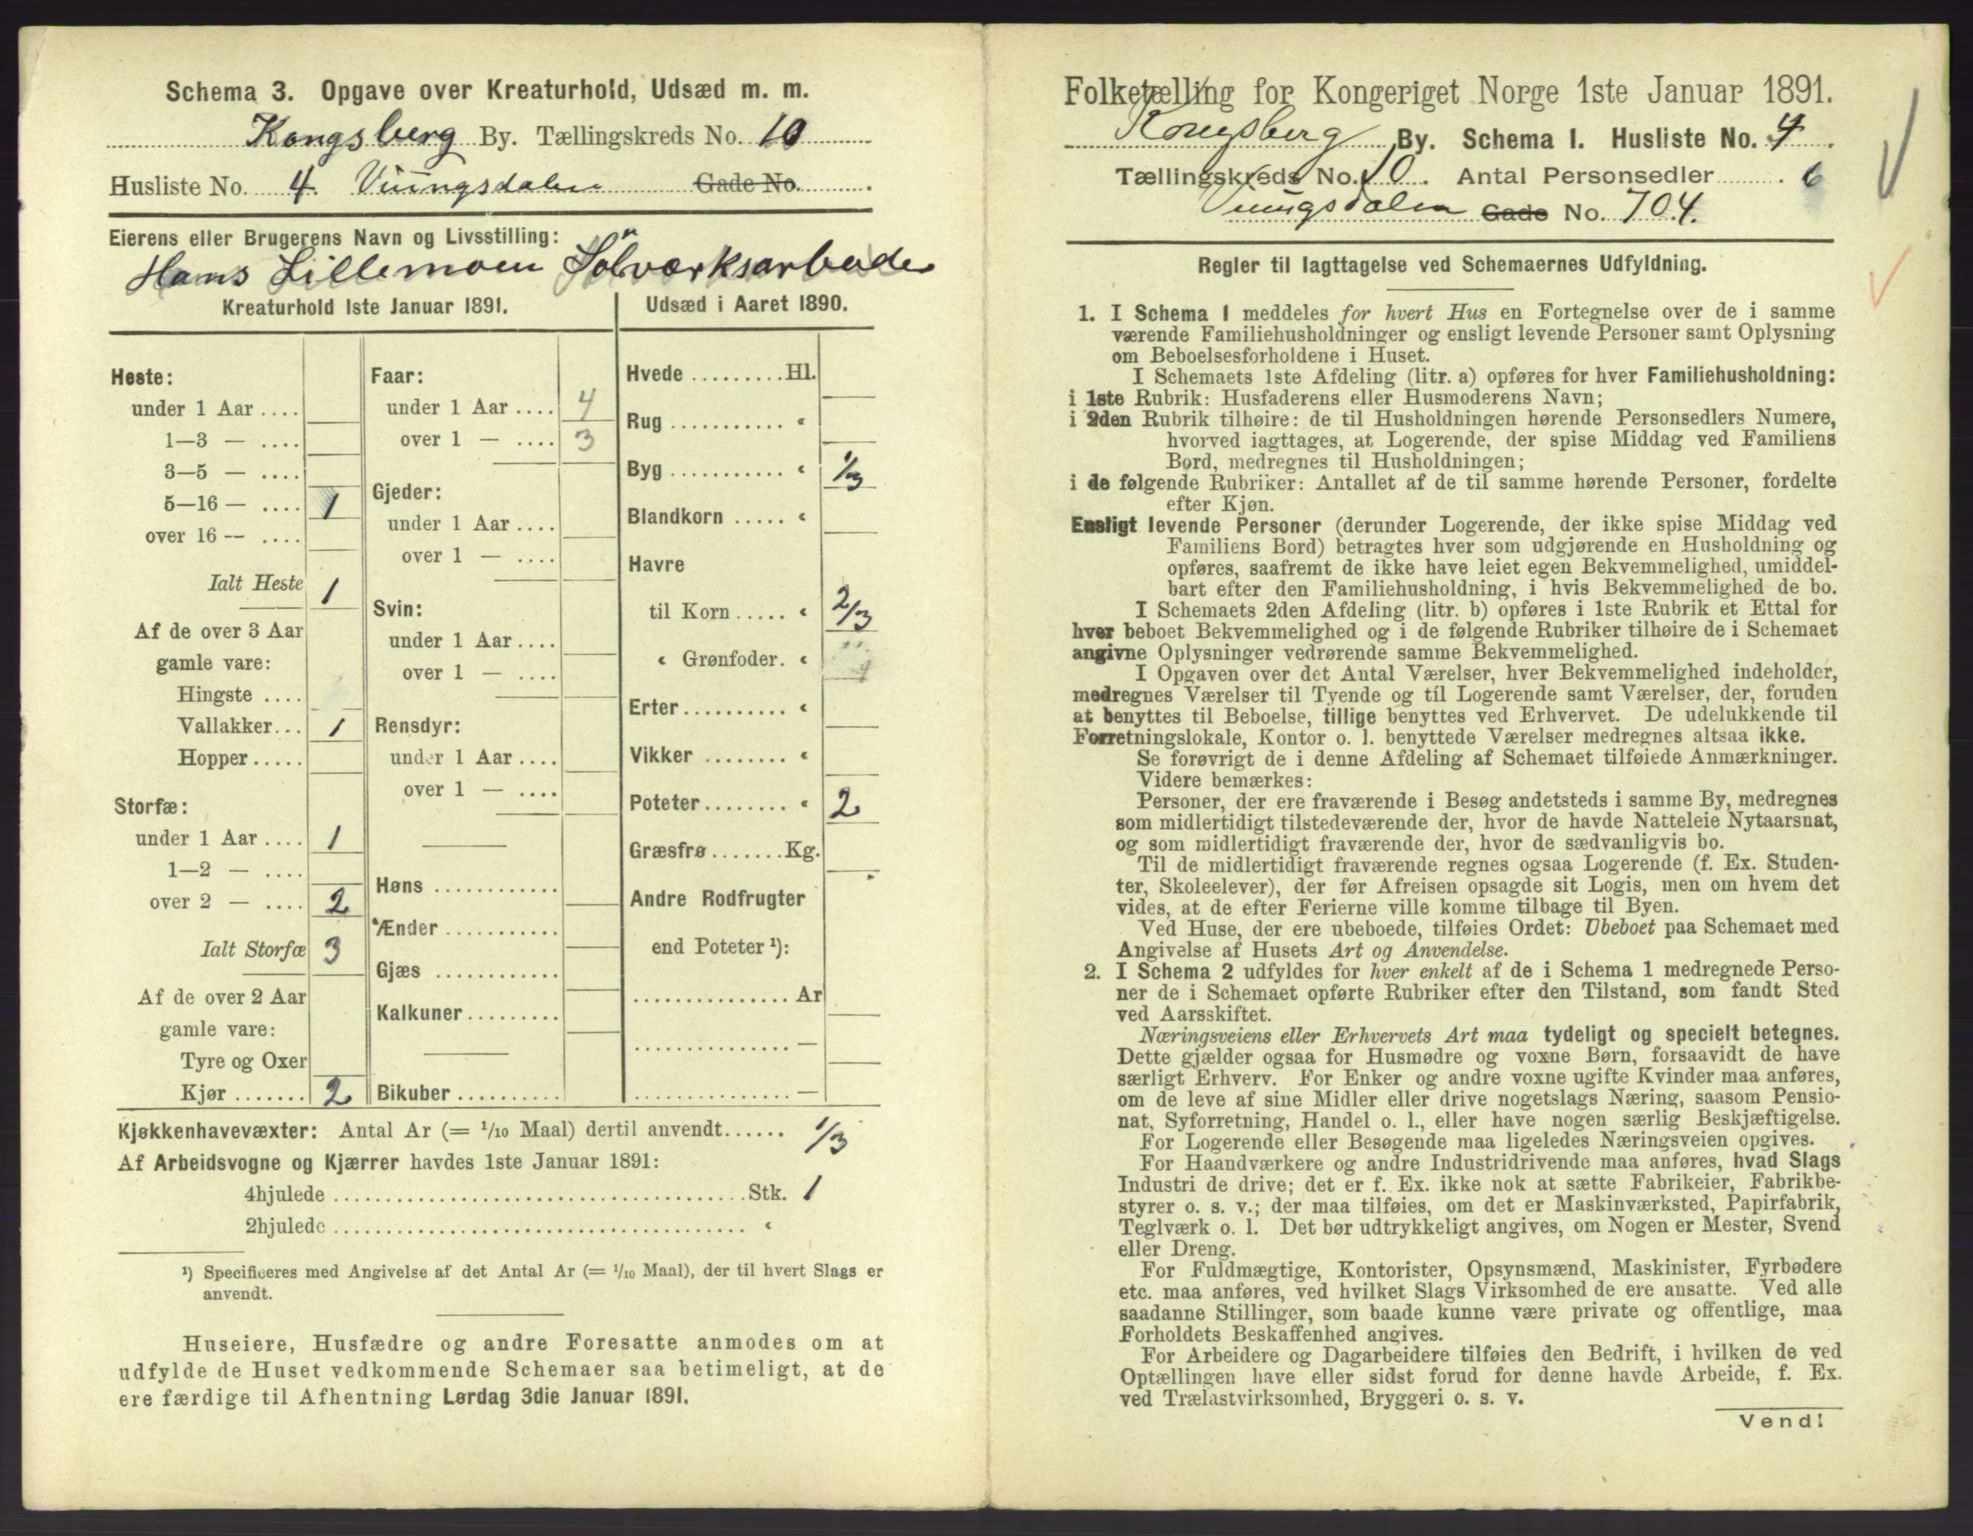 Schema 3. Opgave over Kreaturhold, Udsæd m. m.
Kongsberg By. Tællingskreds No. 10
Husliste No. 4 Gade No.
Eierens eller Brugerens Navn og Livsstilling:
Hans Lillemoen Sölværksarbeider
Kreaturhold 1ste Januar 1891.
Heste:
under 1 Aar ....
1—3 — ....
3—5 — ....
5—16 — .... 1
over 16 — ....
Ialt Heste 1
Af de over 3 Aar
gamle vare:
Hingste ....
Vallakker... 1
Hopper.....
Storfæ:
under 1 Aar .... 1
1—2 — ....
over 2 — .... 2
Ialt Storfæ 3
Af de over 2 Aar
gamle vare:
Tyre og Oxer
Kjør ....... 2
Faar:
under 1 Aar .... 4
over 1 — .... 3
Gjeder:
under 1 Aar ....
over 1 — ....
Svin:
under 1 Aar ....
over 1 — ....
Rensdyr:
under 1 Aar ....
over 1 — ....
Høns ............
Ænder ...........
Gjæs ............
Kalkuner.........
Bikuber ..........
Udsæd i Aaret 1890.
Hvede .........Hl.
Rug ........... "
Byg ........... " 1/3
Blandkorn ..... "
Havre
til Korn ..... " 2/3
" Grønfoder. "
Erter .......... "
Vikker ........ "
Poteter........ " 2
Græsfrø.......Kg.
Andre Rodfrugter
end Poteter ¹):
............... Ar
............... —
............... —
Kjøkkenhavevæxter: Antal Ar (= 1/10 Maal) dertil anvendt...... 1/3
Af Arbeidsvogne og Kjærrer havdes 1ste Januar 1891:
4hjulede ........................................Stk. 1
2hjulede ........................................ "
¹) Specificeres med Angivelse af det Antal Ar (= 1/10 Maal), der til hvert Slags er
anvendt.
Huseiere, Husfædre og andre Foresatte anmodes om at
udfylde de Huset vedkommende Schemaer saa betimeligt, at de
ere færdige til Afhentning Lørdag 3die Januar 1891.
Folketælling for Kongeriget Norge 1ste Januar 1891.
Kongsberg By. Schema I. Husliste No. 4.
Tællingskreds No. 10. Antal Personsedler . 6
Gade No. 704.
Regler til Iagttagelse ved Schemaernes Udfyldning.
1. I Schema I meddeles for hvert Hus en Fortegnelse over de i samme
værende Familiehusholdninger og ensligt levende Personer samt Oplysning
om Beboelsesforholdene i Huset.
I Schemaets 1ste Afdeling (litr. a) opføres for hver Familiehusholdning:
i 1ste Rubrik: Husfaderens eller Husmoderens Navn;
i 2den Rubrik tilhøire: de til Husholdningen hørende Personsedlers Numere,
hvorved iagttages, at Logerende, der spise Middag ved Familiens
Bord, medregnes til Husholdningen;
i de følgende Rubriker: Antallet af de til samme hørende Personer, fordelte
efter Kjøn.
Ensligt levende Personer (derunder Logerende, der ikke spise Middag ved
Familiens Bord) betragtes hver som udgjørende en Husholdning og
opføres, saafremt de ikke have leiet egen Bekvemmelighed, umiddel-
bart efter den Familiehusholdning, i hvis Bekvemmelighed de bo.
I Schemaets 2den Afdeling (litr. b) opføres i 1ste Rubrik et Ettal for
hver beboet Bekvemmelighed og i de følgende Rubriker tilhøire de i Schemaet
angivne Oplysninger vedrørende samme Bekvemmelighed.
I Opgaven over det Antal Værelser, hver Bekvemmelighed indeholder,
medregnes Værelser til Tyende og til Logerende samt Værelser, der, foruden
at benyttes til Beboelse, tillige benyttes ved Erhvervet. De udelukkende til
Forretningslokale, Kontor o. l. benyttede Værelser medregnes altsaa ikke.
Se forøvrigt de i denne Afdeling af Schemaet tilføiede Anmærkninger.
Videre bemærkes:
Personer, der ere fraværende i Besøg andetsteds i samme By, medregnes
som midlertidigt tilstedeværende der, hvor de havde Natteleie Nytaarsnat,
og som midlertidigt fraværende der, hvor de sædvanligvis bo.
Til de midlertidigt fraværende regnes ogsaa Logerende (f. Ex. Studen-
ter, Skoleelever), der før Afreisen opsagde sit Logis, men om hvem det
vides, at de efter Ferierne ville komme tilbage til Byen.
Ved Huse, der ere ubeboede, tilføies Ordet: Ubeboet paa Schemaet med
Angivelse af Husets Art og Anvendelse.
2. I Schema 2 udfyldes for hver enkelt af de i Schema 1 medregnede Perso-
ner de i Schemaet opførte Rubriker efter den Tilstand, som fandt Sted
ved Aarsskiftet.
Næringsveiens eller Erhvervets Art maa tydeligt og specielt betegnes.
Dette gjælder ogsaa for Husmødre og voxne Børn, forsaavidt de have
særligt Erhverv. For Enker og andre voxne ugifte Kvinder maa anføres,
om de leve af sine Midler eller drive nogetslags Næring, saasom Pensio-
nat, Syforretning, Handel o. l., eller have nogen særlig Beskjæftigelse.
For Logerende eller Besøgende maa ligeledes Næringsveien opgives.
For Haandværkere og andre Industridrivende maa anføres, hvad Slags
Industri de drive; det er f. Ex. ikke nok at sætte Fabrikeier, Fabrikbe-
styrer o. s. v.; der maa tilføies, om det er Maskinværksted, Papirfabrik,
Teglværk o. l. Det bør udtrykkeligt angives, om Nogen er Mester, Svend
eller Dreng.
For Fuldmægtige, Kontorister, Opsynsmænd, Maskinister, Fyrbødere
etc. maa anføres, ved hvilket Slags Virksomhed de ere ansatte. Ved alle
saadanne Stillinger, som baade kunne være private og offentlige, maa
Forholdets Beskaffenhed angives.
For Arbeidere og Dagarbeidere tilføies den Bedrift, i hvilken de ved
Optællingen have eller sidst forud for denne havde Arbeide, f. Ex.
ved Trælastvirksomhed, Bryggeri o. s. v.
Vend!